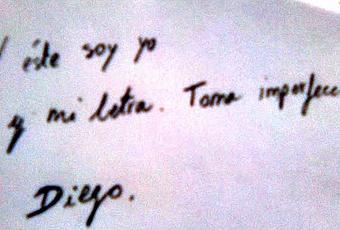 éste soy yo
y mi letra. Torna imperfecc
Diego.